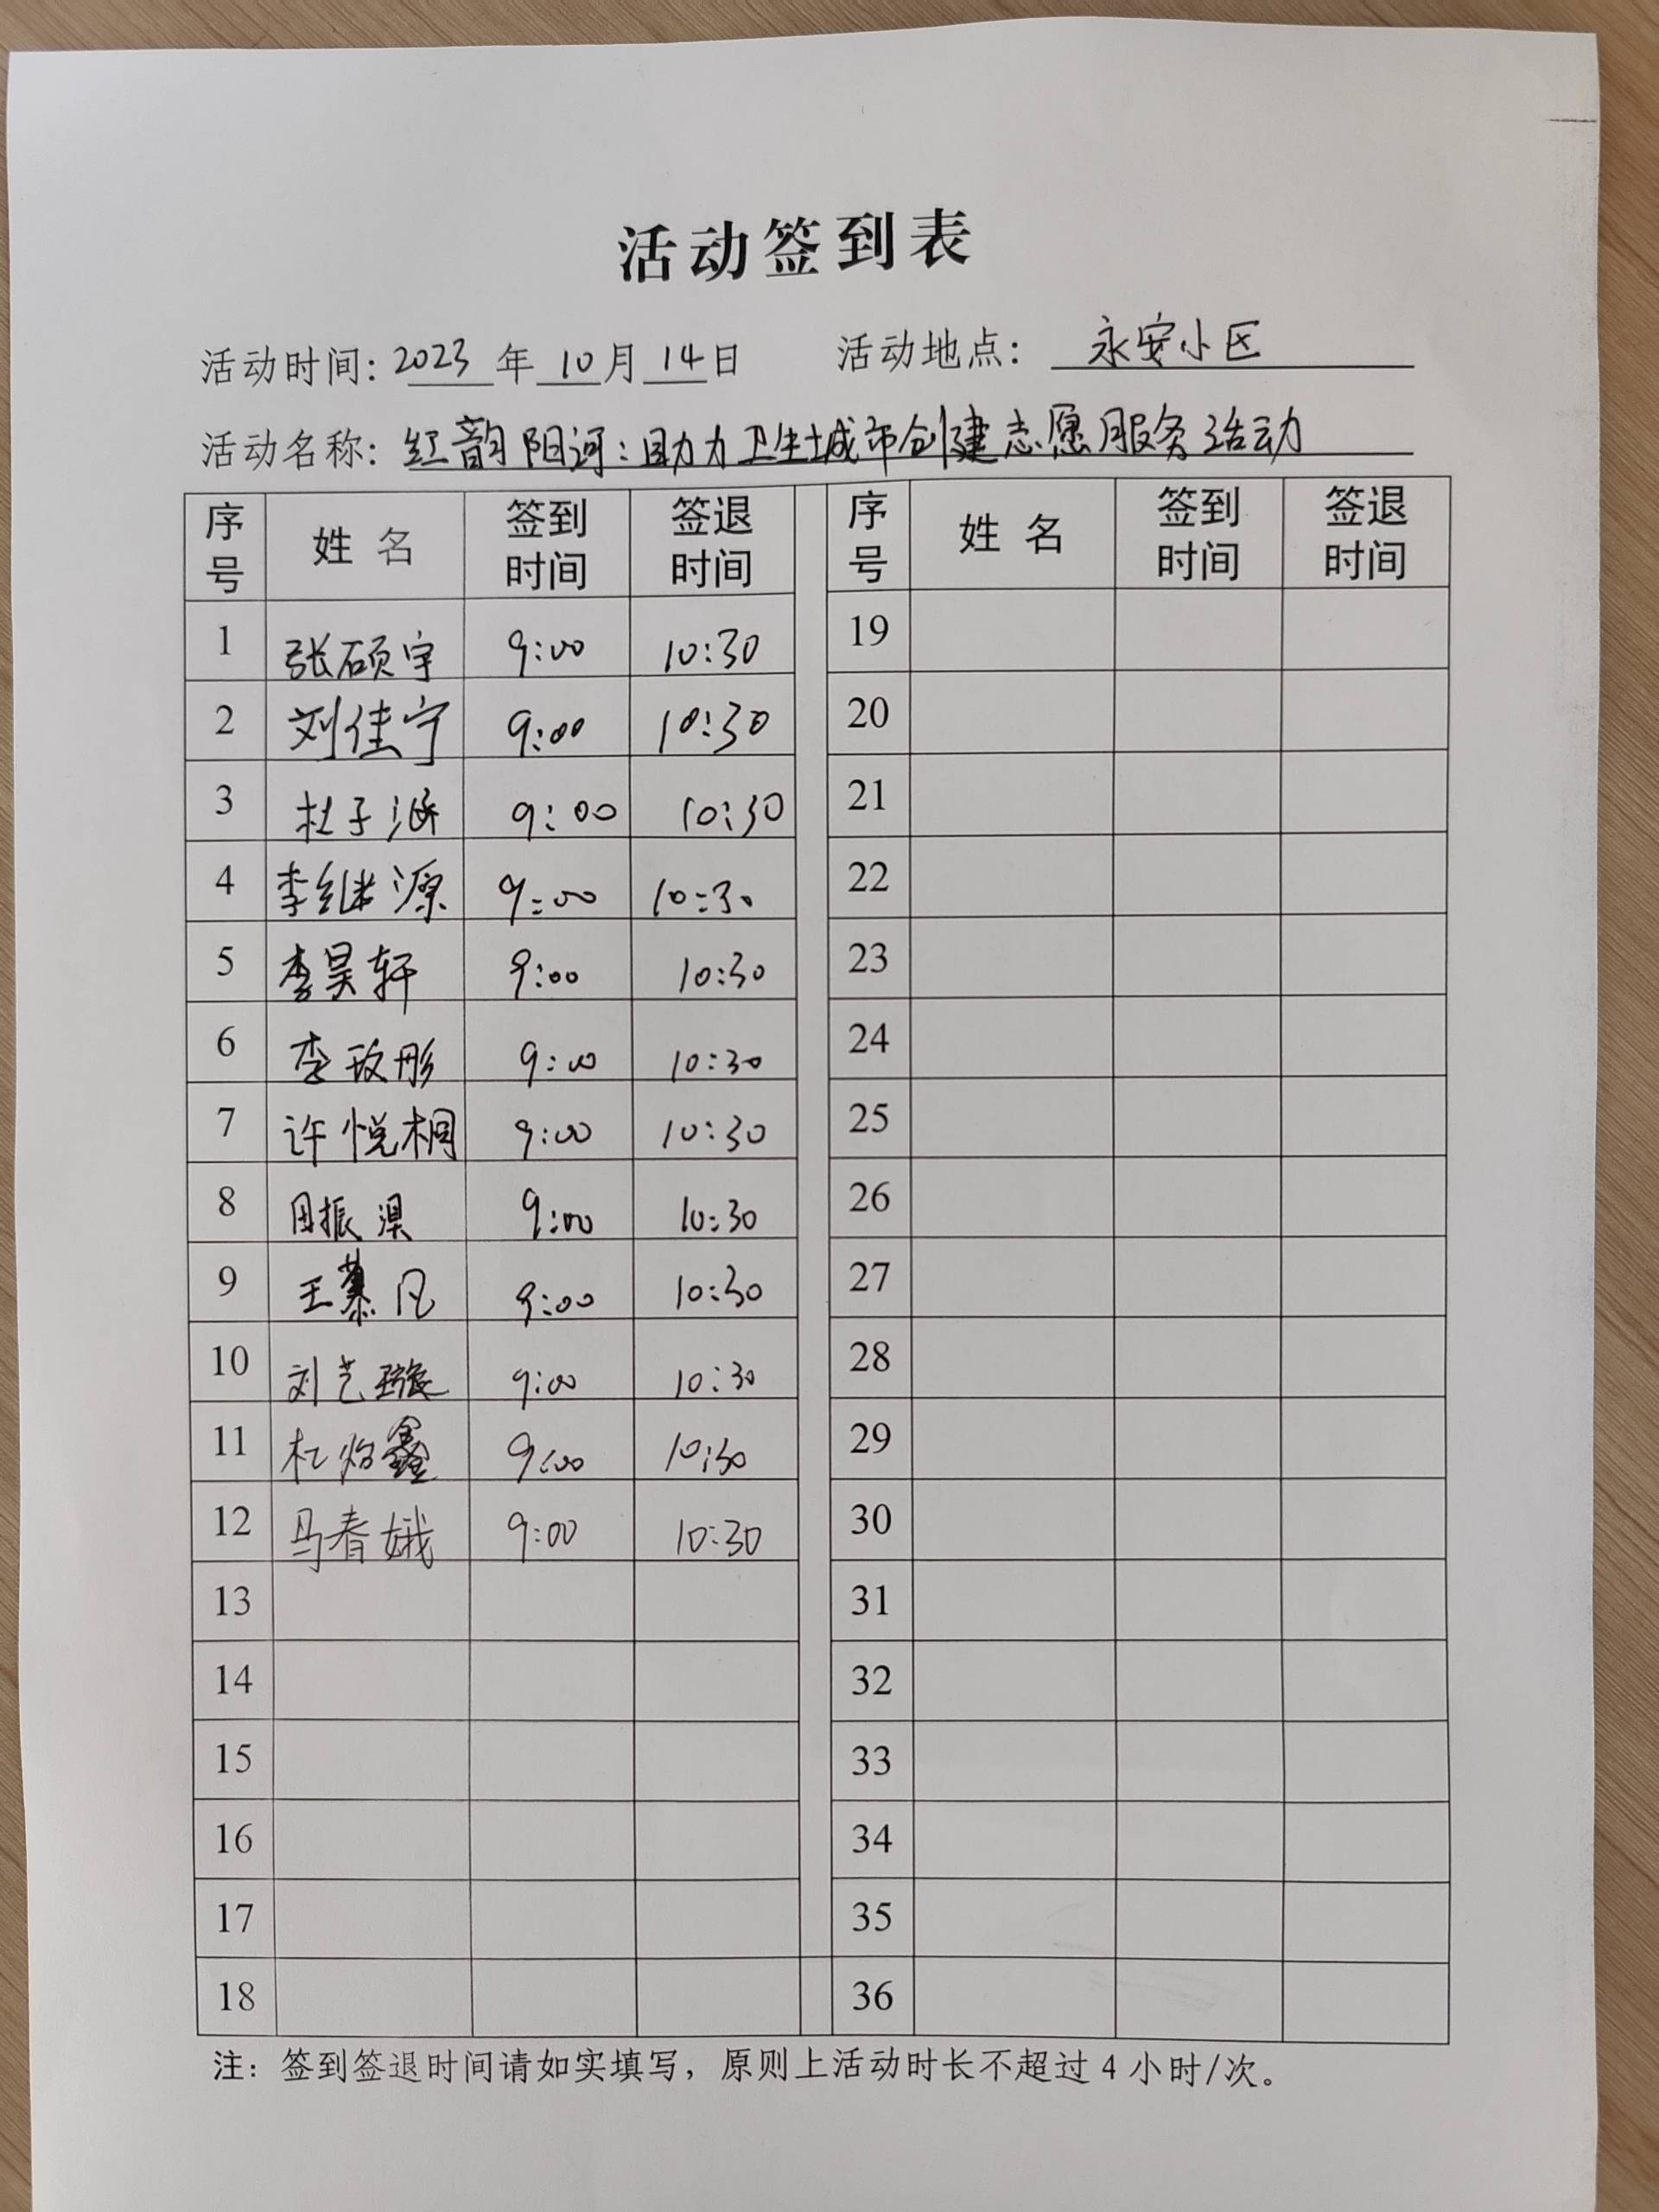 活动签到表
活动时间: 2023 年 10 月 14 日 活动地点: 永安小区
活动名称: 红韵阳河:助力卫生城市创建志愿服务活动
序号 姓名 签到时间 签退时间 序号 姓名 签到时间 签退时间
1 张硕宇 9:00 10:30 19
2 刘佳宁 9:00 10:30 20
3 杜子涵 9:00 10:30 21
4 李继源 9:00 10:30 22
5 李昊轩 9:00 10:30 23
6 李玫彤 9:00 10:30 24
7 许悦桐 9:00 10:30 25
8 田振淏 9:00 10:30 26
9 王慕凡 9:00 10:30 27
10 刘艺璇 9:00 10:30 28
11 杜 鑫 9:00 10:30 29
12 马春娥 9:00 10:30 30
13 31
14 32
15 33
16 34
17 35
18 36
注: 签到签退时间请如实填写,原则上活动时长不超过 4 小时/次。